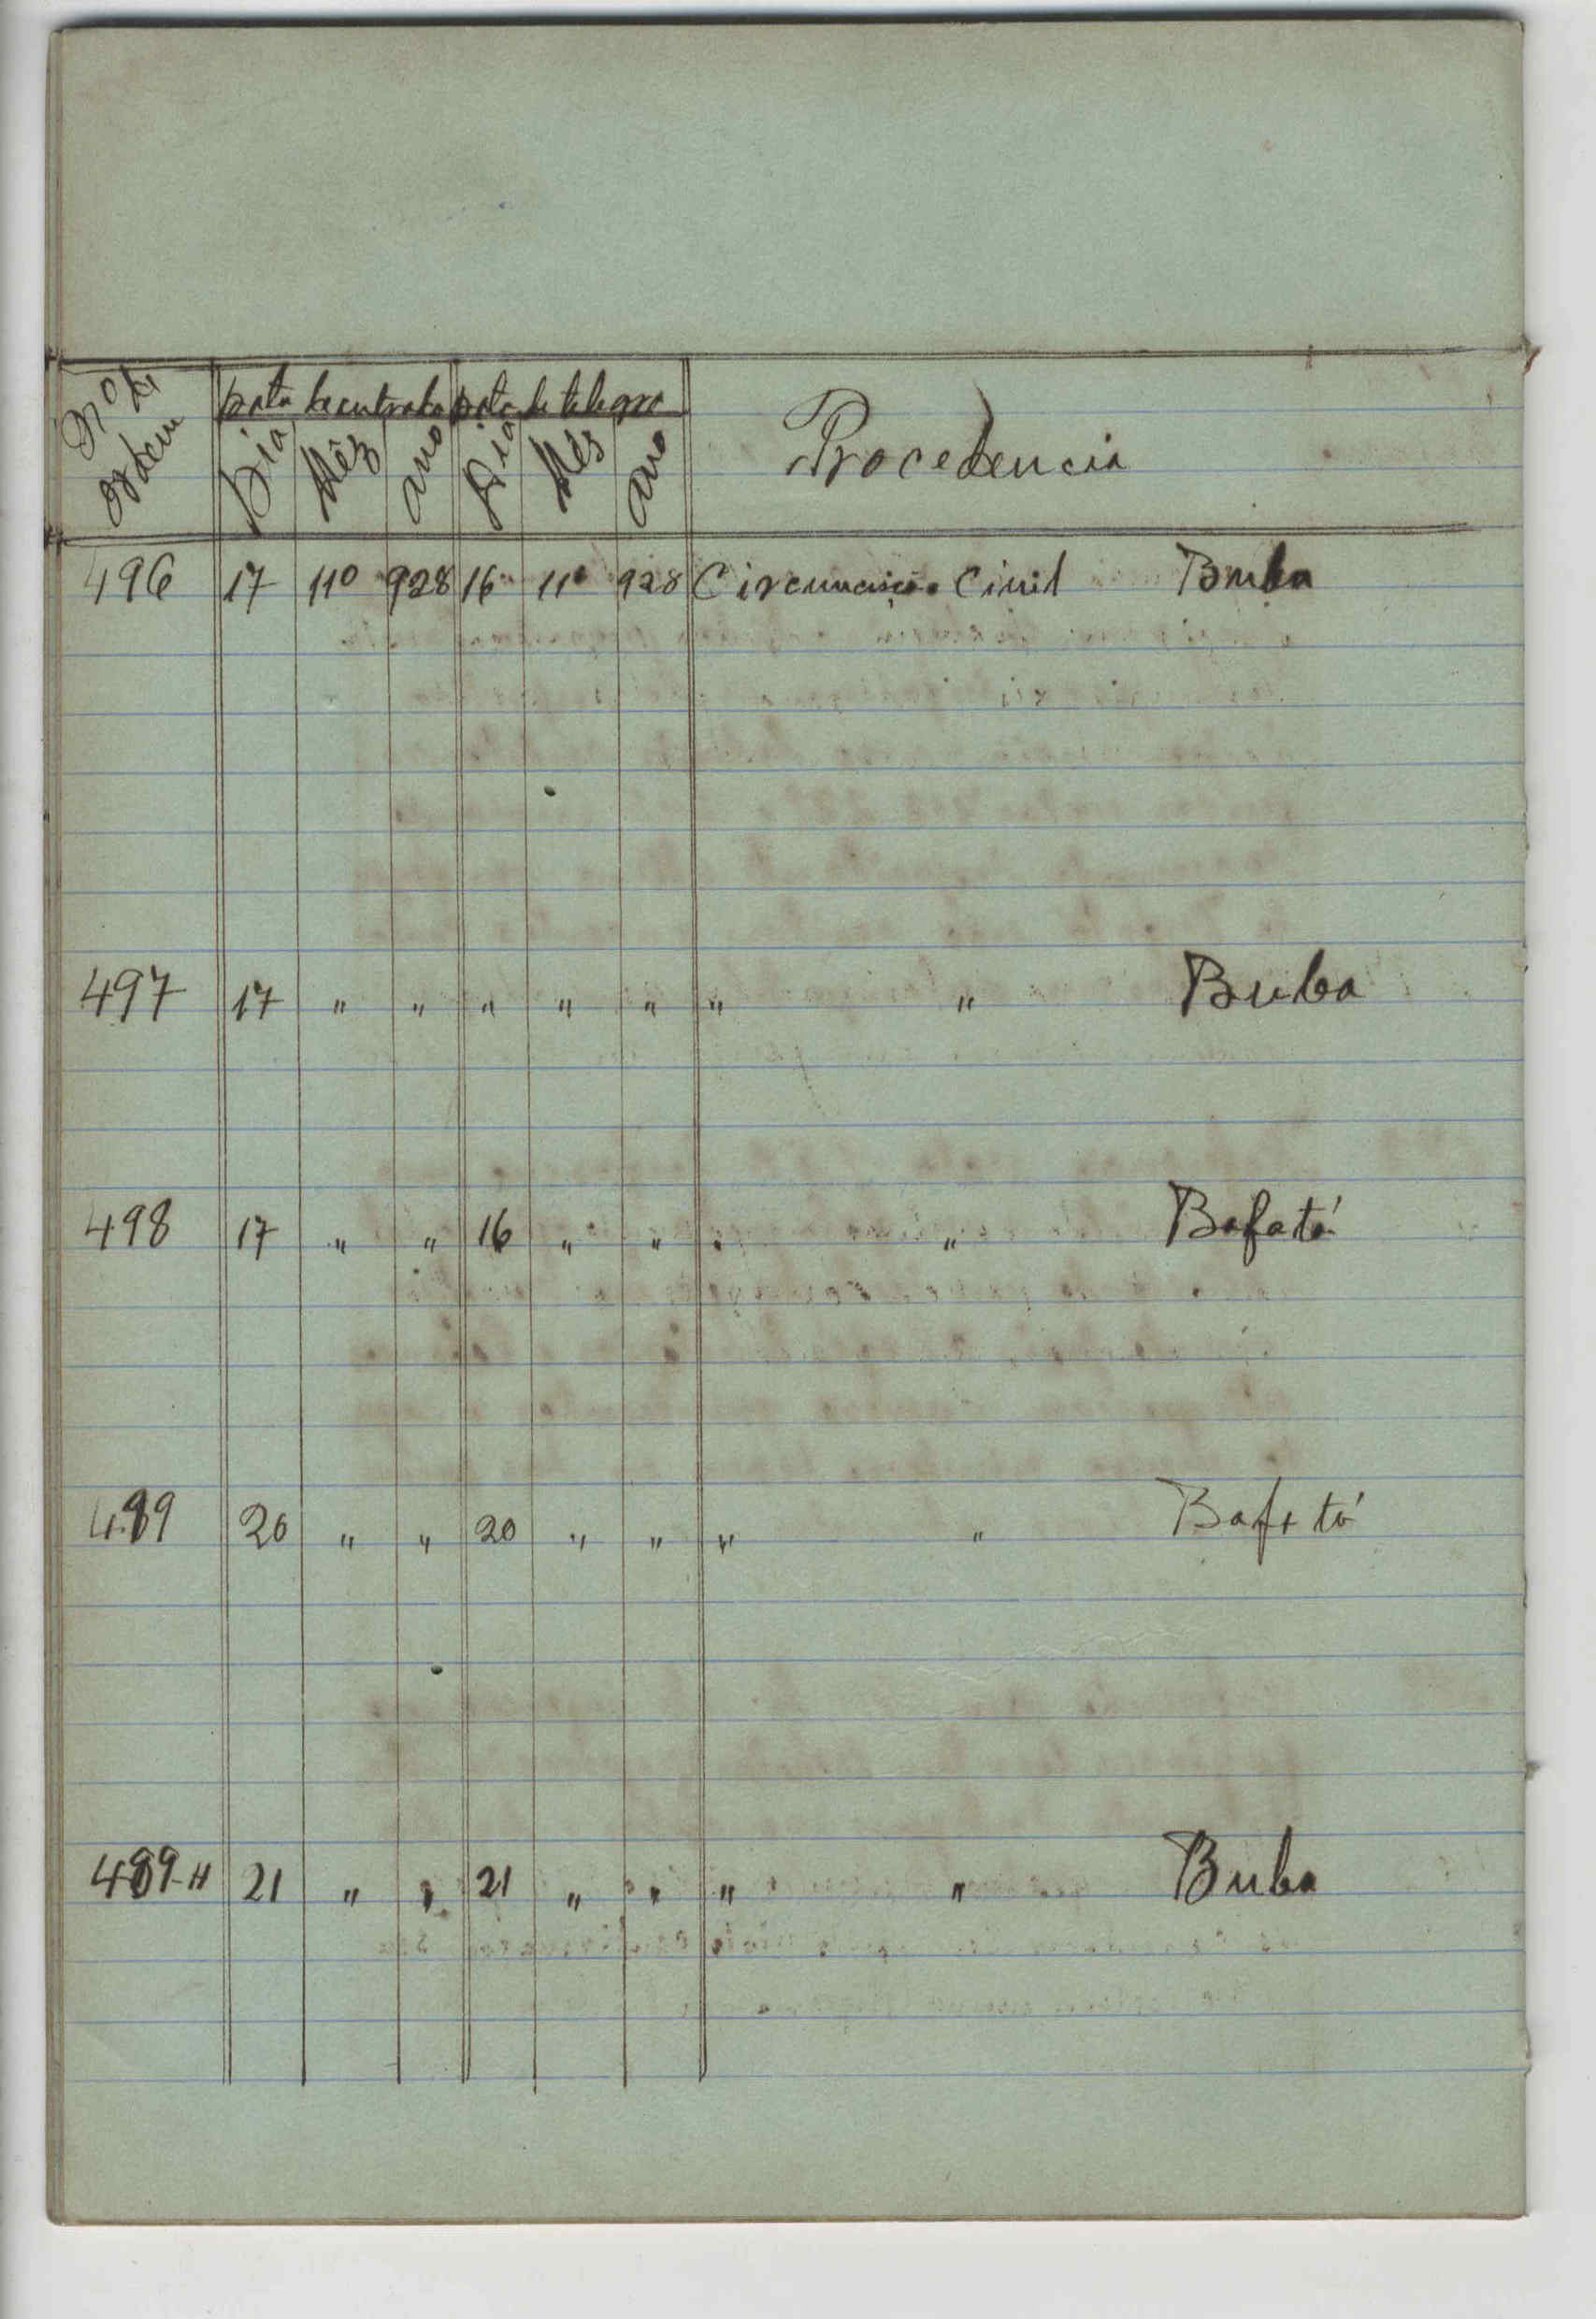 Nº de ordem | Data de entrada | Data de telegra | Procedencia
Dia | Mêz | ano | Dia | Mês | ano
496 17 11º 928 16 11º 928 Circunscição Civil Buba
497 17 " " " " " " " Buba
498 17 " " 16 " " " " Bafatá
499 20 " " 20 " " " " Bafatá
489-H 21 " " 21 " " " " Buba